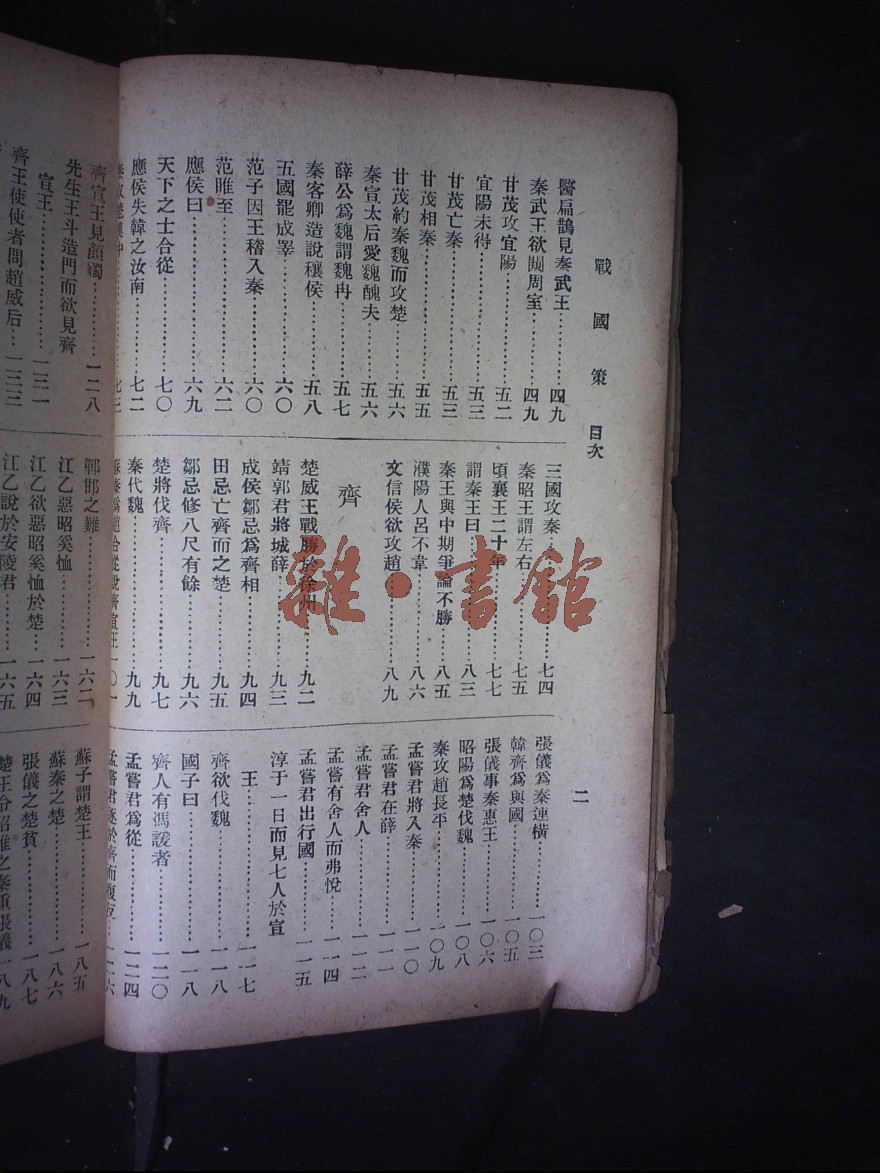 戰國策 目次
二
醫扁鵲見秦武王⋯⋯四九
秦武王欲闚周室⋯⋯四九
甘茂攻宜陽⋯⋯五二
宜陽未得⋯⋯五三
甘茂亡秦⋯⋯五三
甘茂相秦⋯⋯五五
甘茂約秦魏而攻楚⋯⋯五六
秦宣太后愛魏醜夫⋯⋯五六
薛公爲魏謂魏冉⋯⋯五七
秦客卿造說穰侯⋯⋯五八
五國罷成睪⋯⋯六〇
范子因王稽入秦⋯⋯六〇
范睢至⋯⋯六二
應侯曰⋯⋯六九
天下之士合從⋯⋯七〇
應侯失韓之汝南⋯⋯七二
三國攻秦⋯⋯七四
秦昭王謂左右⋯⋯七五
頃襄王二十年⋯⋯七七
謂秦王曰⋯⋯八三
秦王與中期爭論不勝⋯⋯八五
濮陽人呂不韋⋯⋯八六
文信侯欲攻趙⋯⋯八九
齊
楚威王戰勝於徐州⋯⋯九二
靖郭君將城薛⋯⋯九三
成侯鄒忌爲齊相⋯⋯九四
田忌亡齊而之楚⋯⋯九五
鄒忌修八尺有餘⋯⋯九六
楚將伐齊⋯⋯九七
秦代魏⋯⋯九九
蘇秦爲趙合從說齊宣王一〇一
張儀爲秦連橫⋯⋯一〇三
韓齊爲與國⋯⋯一〇五
張儀事秦惠王⋯⋯一〇六
昭陽爲楚伐魏⋯⋯一〇八
秦攻趙長平⋯⋯一〇九
孟嘗君將入秦⋯⋯一一〇
孟嘗君在薛⋯⋯一一一
孟嘗君舍人⋯⋯一一二
孟嘗有舍人而弗悅⋯⋯一一四
孟嘗君出行國⋯⋯一一五
淳于一日而見七人於宣
王⋯⋯一一七
齊欲伐魏⋯⋯一一八
國子曰⋯⋯一一八
齊人有馮諼者⋯⋯一二〇
孟嘗君爲從⋯⋯一二四
孟嘗君逐於齊而復反⋯⋯一二六
齊宣王見顏斶⋯⋯一二八
先生王斗造門而欲見齊
宣王⋯⋯一三一
齊王使使者問趙威后⋯⋯一三三
鄲邯之難⋯⋯一六二
江乙惡昭奚恤⋯⋯一六三
江乙欲惡昭奚恤於楚⋯⋯一六四
江乙說於安陵君⋯⋯一六五
蘇子謂楚王⋯⋯一八五
蘇秦之楚⋯⋯一八六
張儀之楚貧⋯⋯一八七
楚王令昭雎之秦重張儀一八九
雜·書館